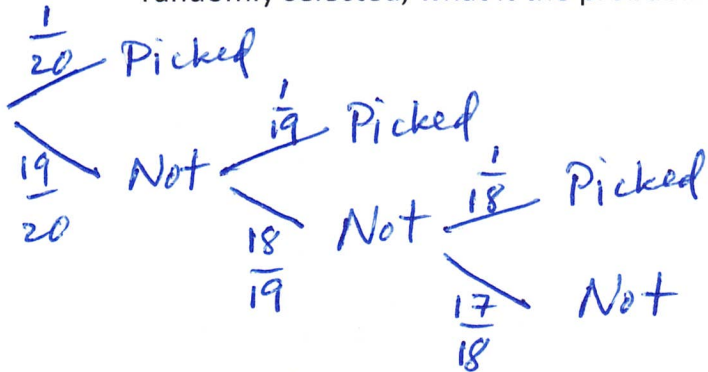 1/20 Picked
19/20 Not
1/19 Picked
18/19 Not
1/18 Picked
17/18 Not